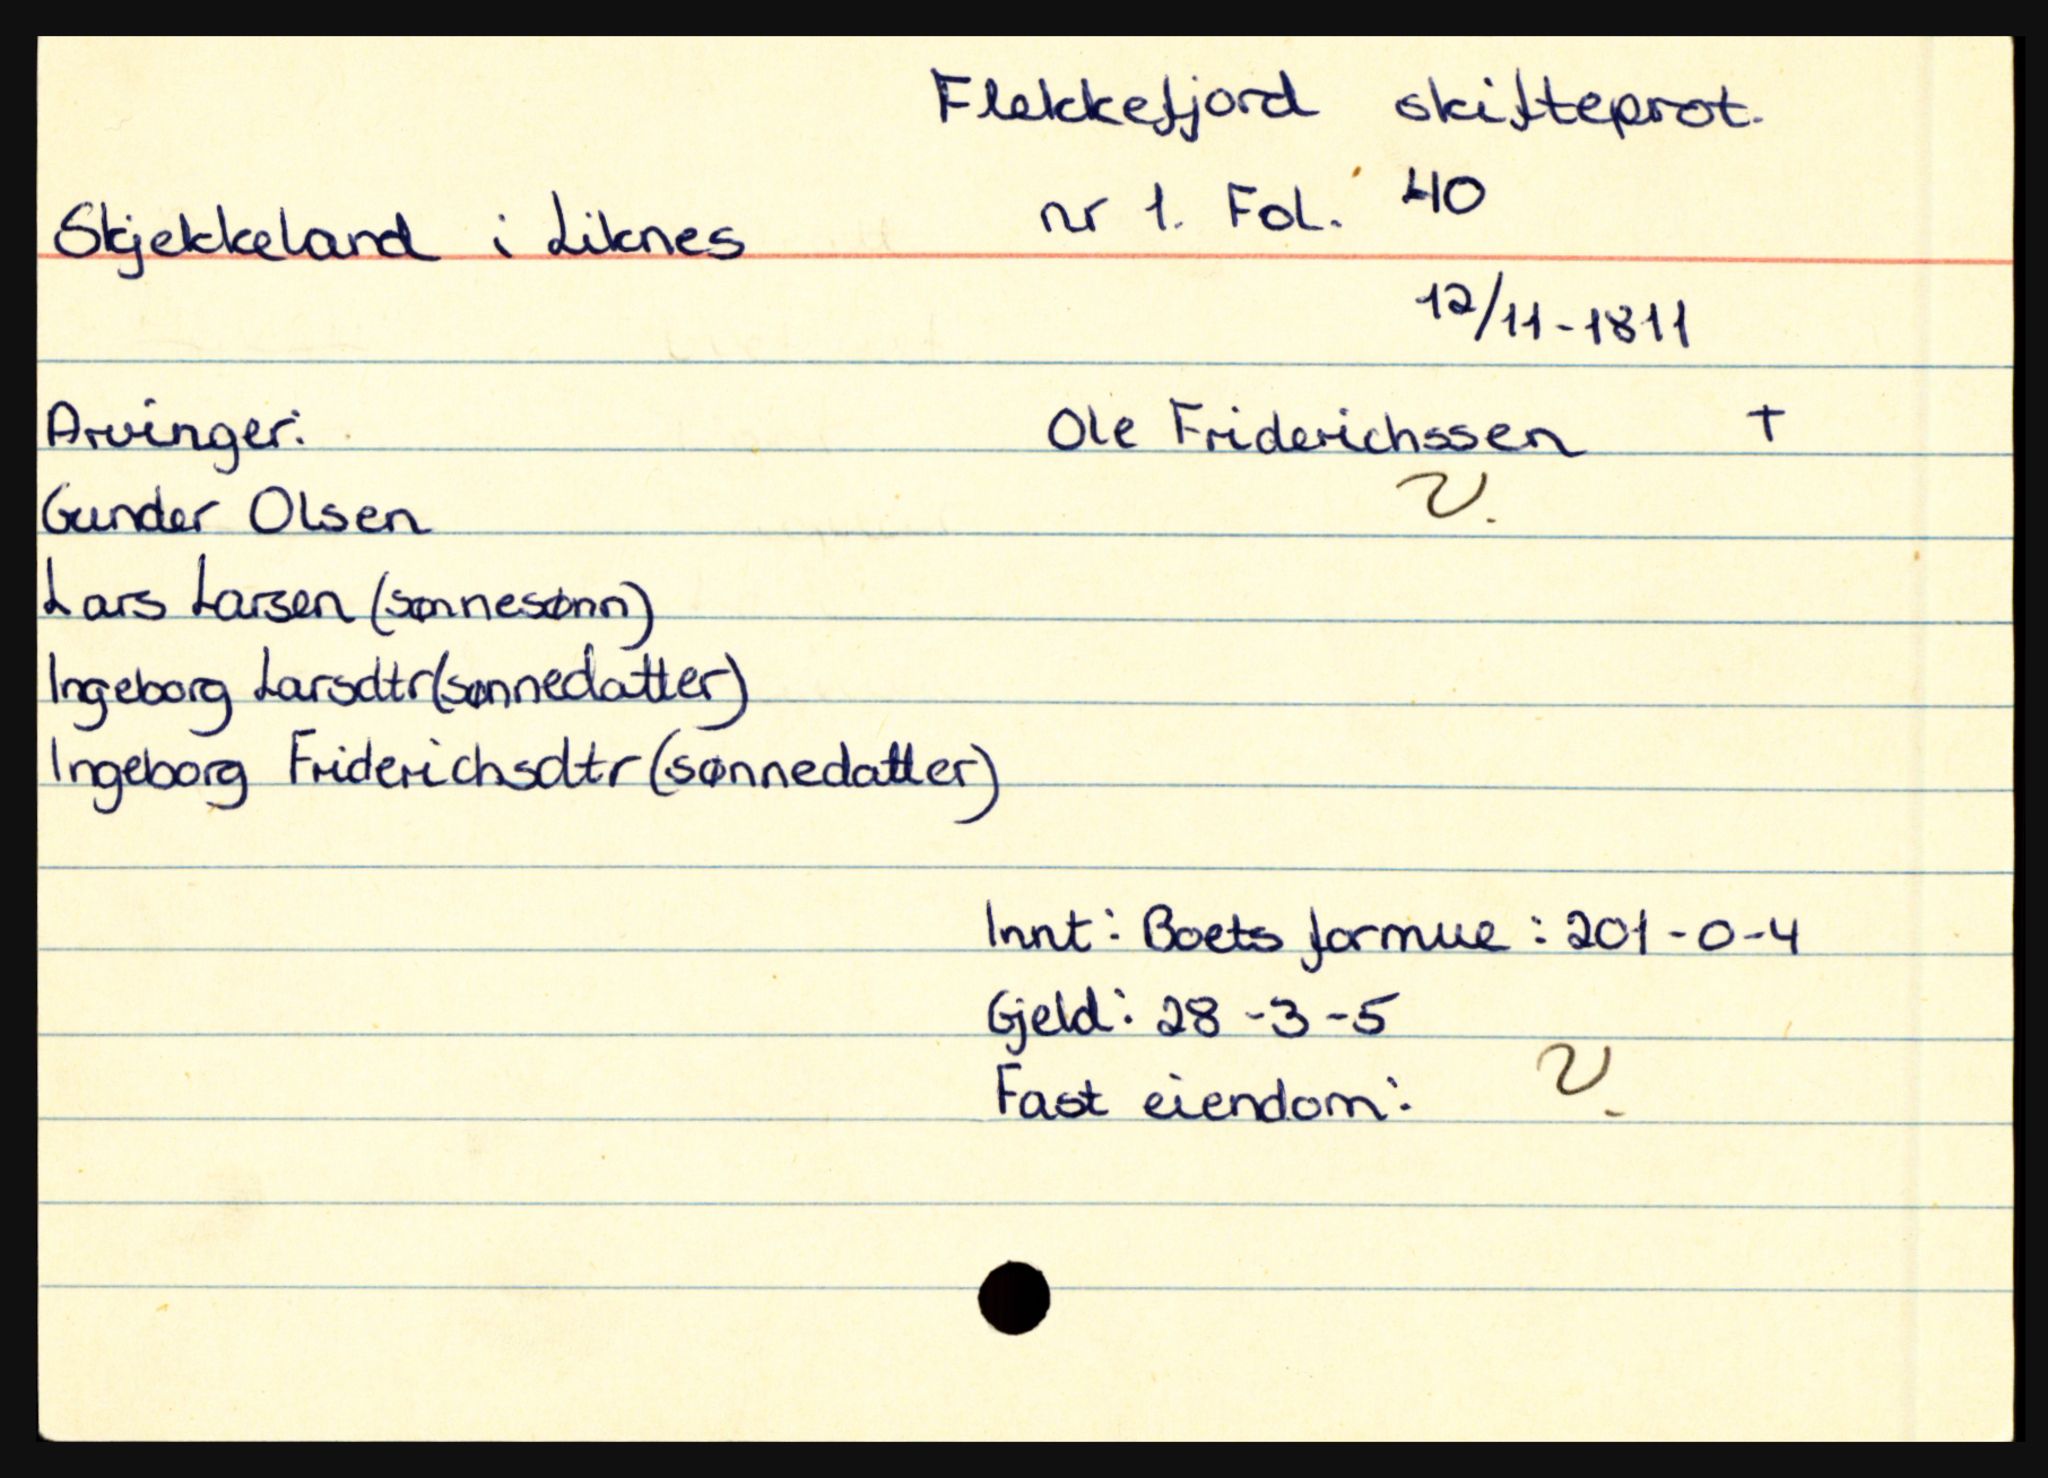 Flekkefjord skifteprot.
nr 1. Fol. 40
Skjekkeland i Liknes
12/11-1811
Arvinger:
Ole Friderichssen +
Gunder Olsen
Lars Larsen (sønnesønn)
Ingeborg Larsdtr (sønnedatter)
Ingeborg Friderichsdtr (sønnedatter)
Innt: Boets formue: 201-0-4
Gjeld: 28-3-5
Fast eiendom: